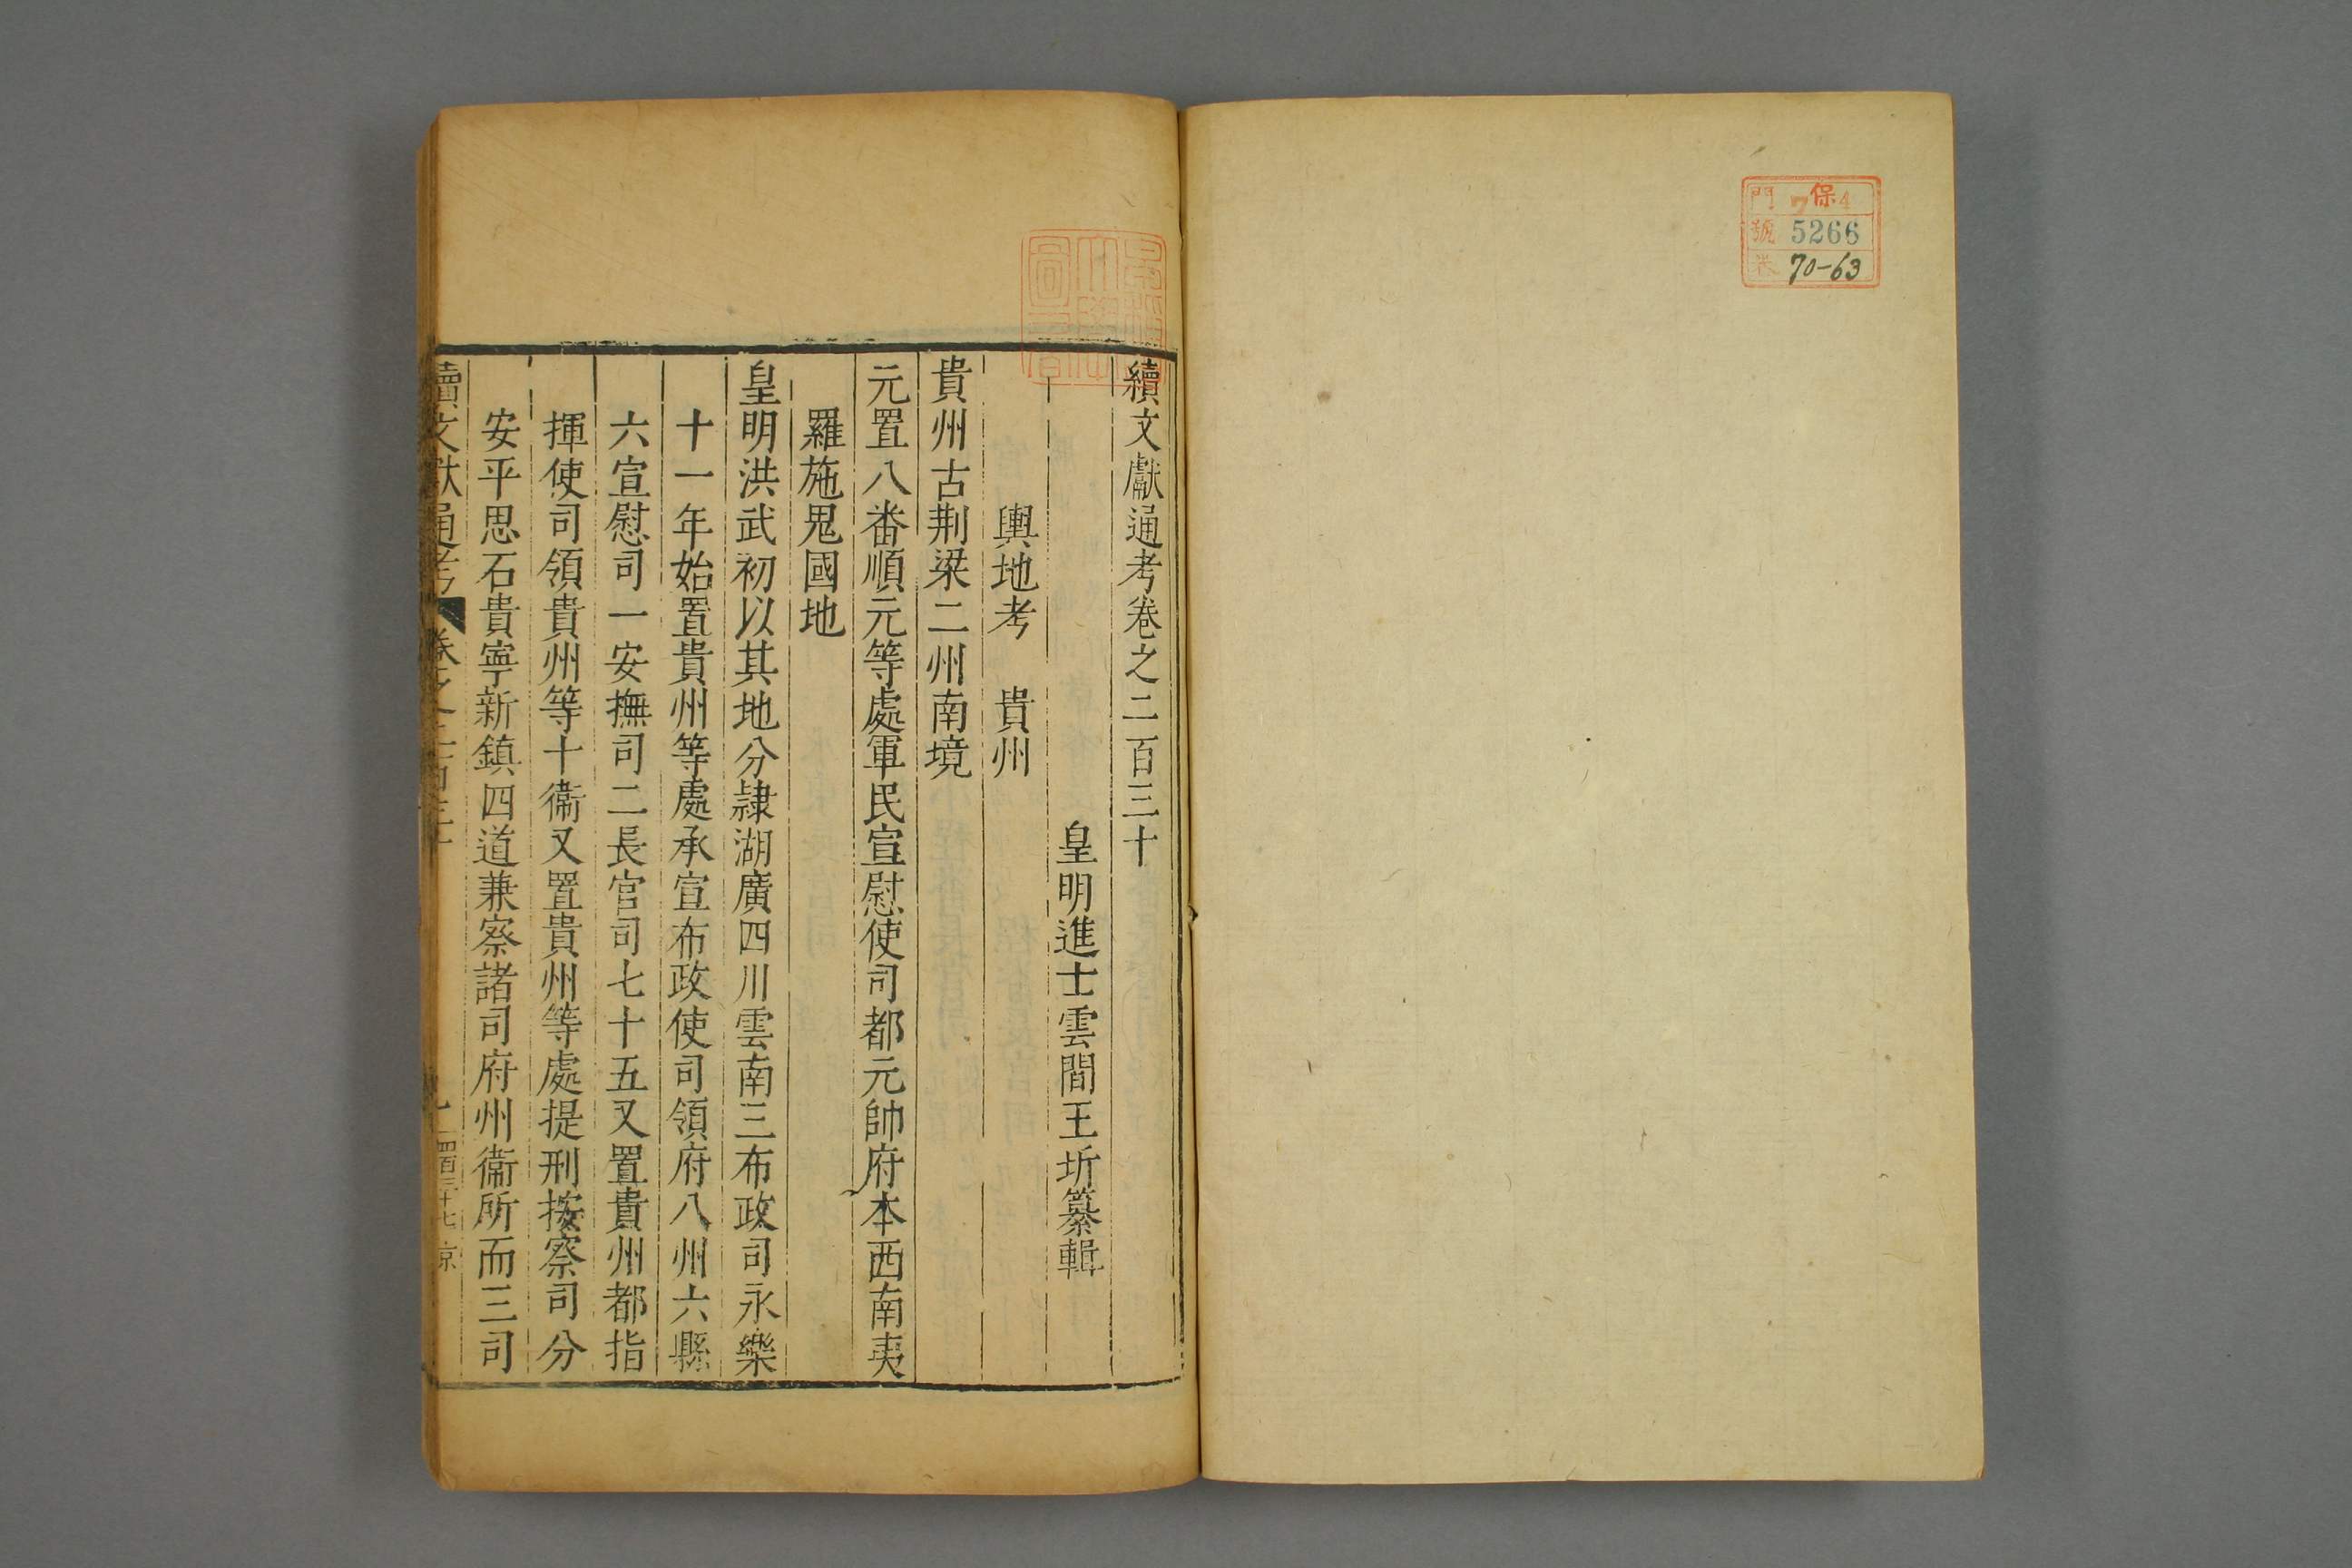 門 7 保 4
號 5266
卷 70-63
續文獻通考卷之二百三十
皇明進士雲間王圻纂輯
輿地考 貴州
貴州古荆梁二州南境
元置八番順元等處軍民宣慰使司都元帥府本西南夷
羅施鬼國地
皇明洪武初以其地分隷湖廣四川雲南三布政司永樂
十一年始置貴州等處承宣布政使司領府八州六縣
六宣慰司一安撫司二長官司七十五又置貴州都指
揮使司領貴州等十衞又置貴州等處提刑按察司分
安平思石貴寧新鎮四道兼察諸司府州衞所而三司
續文獻通考 卷之二百三十